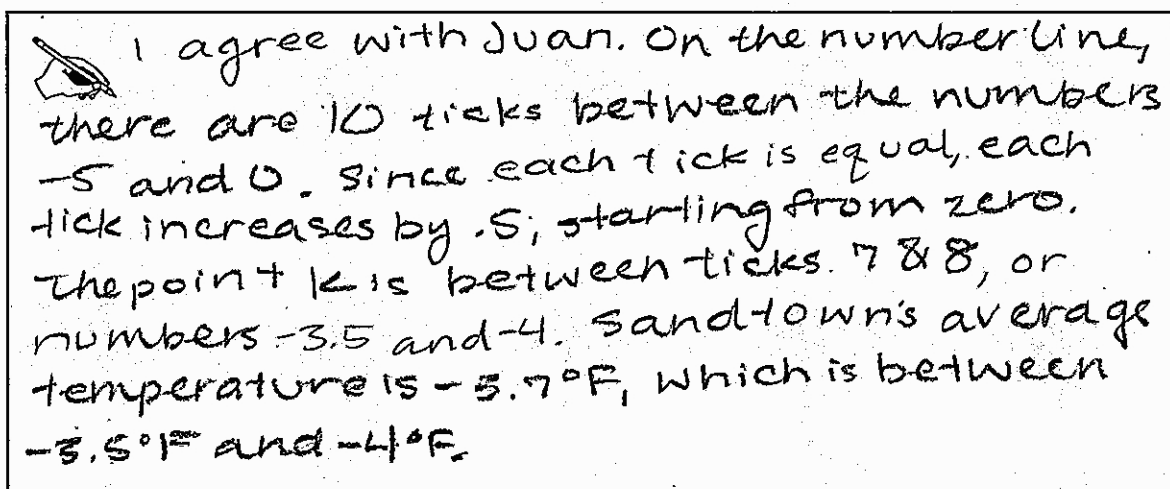 I agree with Juan. On the number line,
there are 10 ticks between the numbers
-5 and 0. Since each tick is equal, each
tick increases by .5, starting from zero.
The point K is between ticks 7 & 8, or
numbers -3.5 and -4. Sandtown's average
temperature is -3.7°F, which is between
-3.5°F and -4°F.